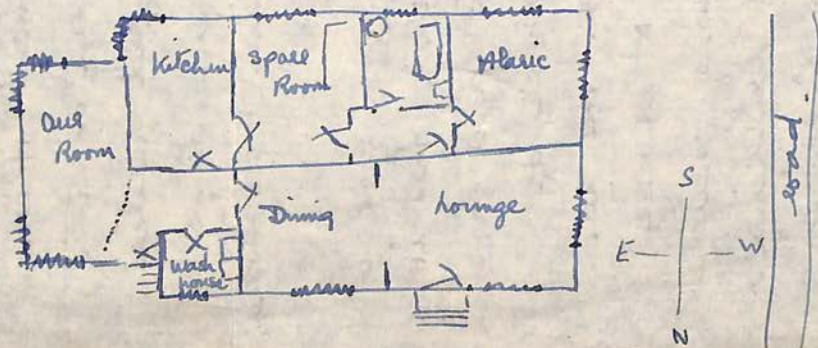 Kitchen
Spare
Room
Alaric
Our
Room
Dining
Lounge
Wash
house
road
S
E
W
N